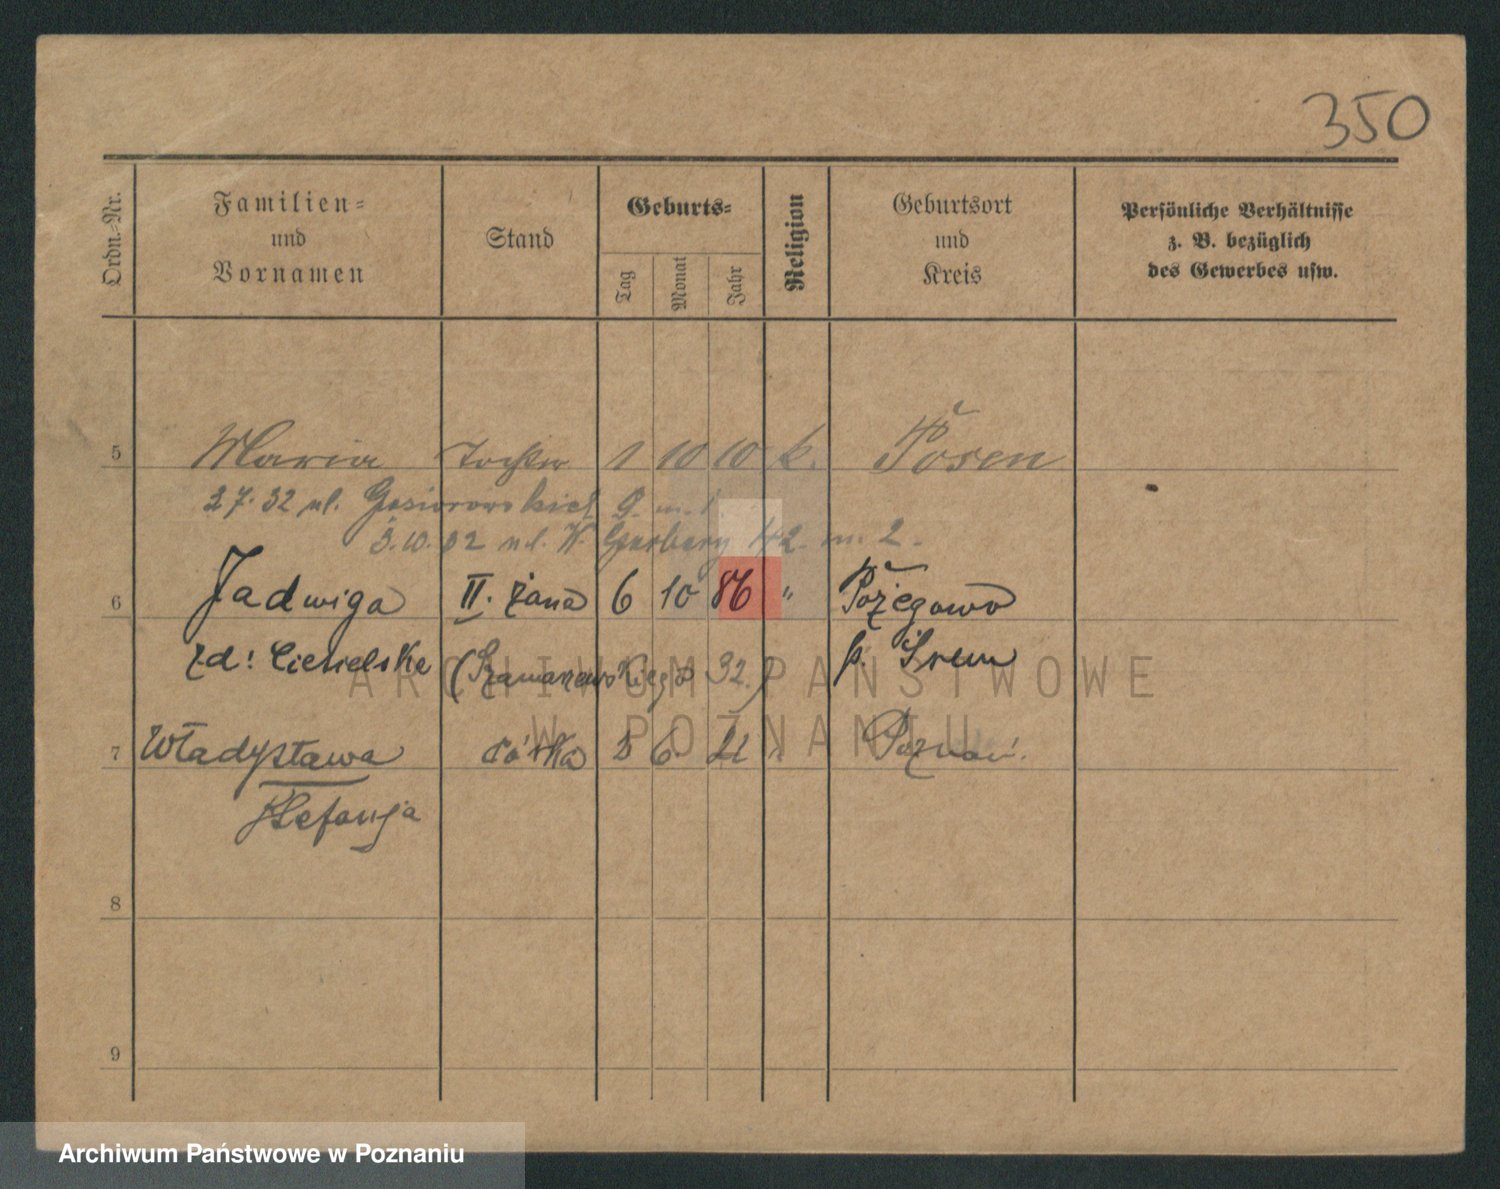 350
Ordn.-Nr.
Familien-
und
Vornamen
Stand
Geburts-
Tag
Monat
Jahr
Religion
Geburtsort
und
Kreis
Persönliche Verhältnisse
z. B. bezüglich
des Gewerbes usw.
5 Maria Tochter 1 10 10 k. Posen
27. 32 ul. Gąsiorowskich 9. m. 1
3.10.32 ul. W. Garbary 42. m. 2.
6 Jadwiga II. żona 6 10 86 " Pożegowo
zd: Cieielska (Szamarzewskiego 32.) p. Śrem
7 Władysława córka 6. 21 Poznań.
Stefanja
8
9
ARCHIWUM PAŃSTWOWE
W POZNANIU
Archiwum Państwowe w Poznaniu